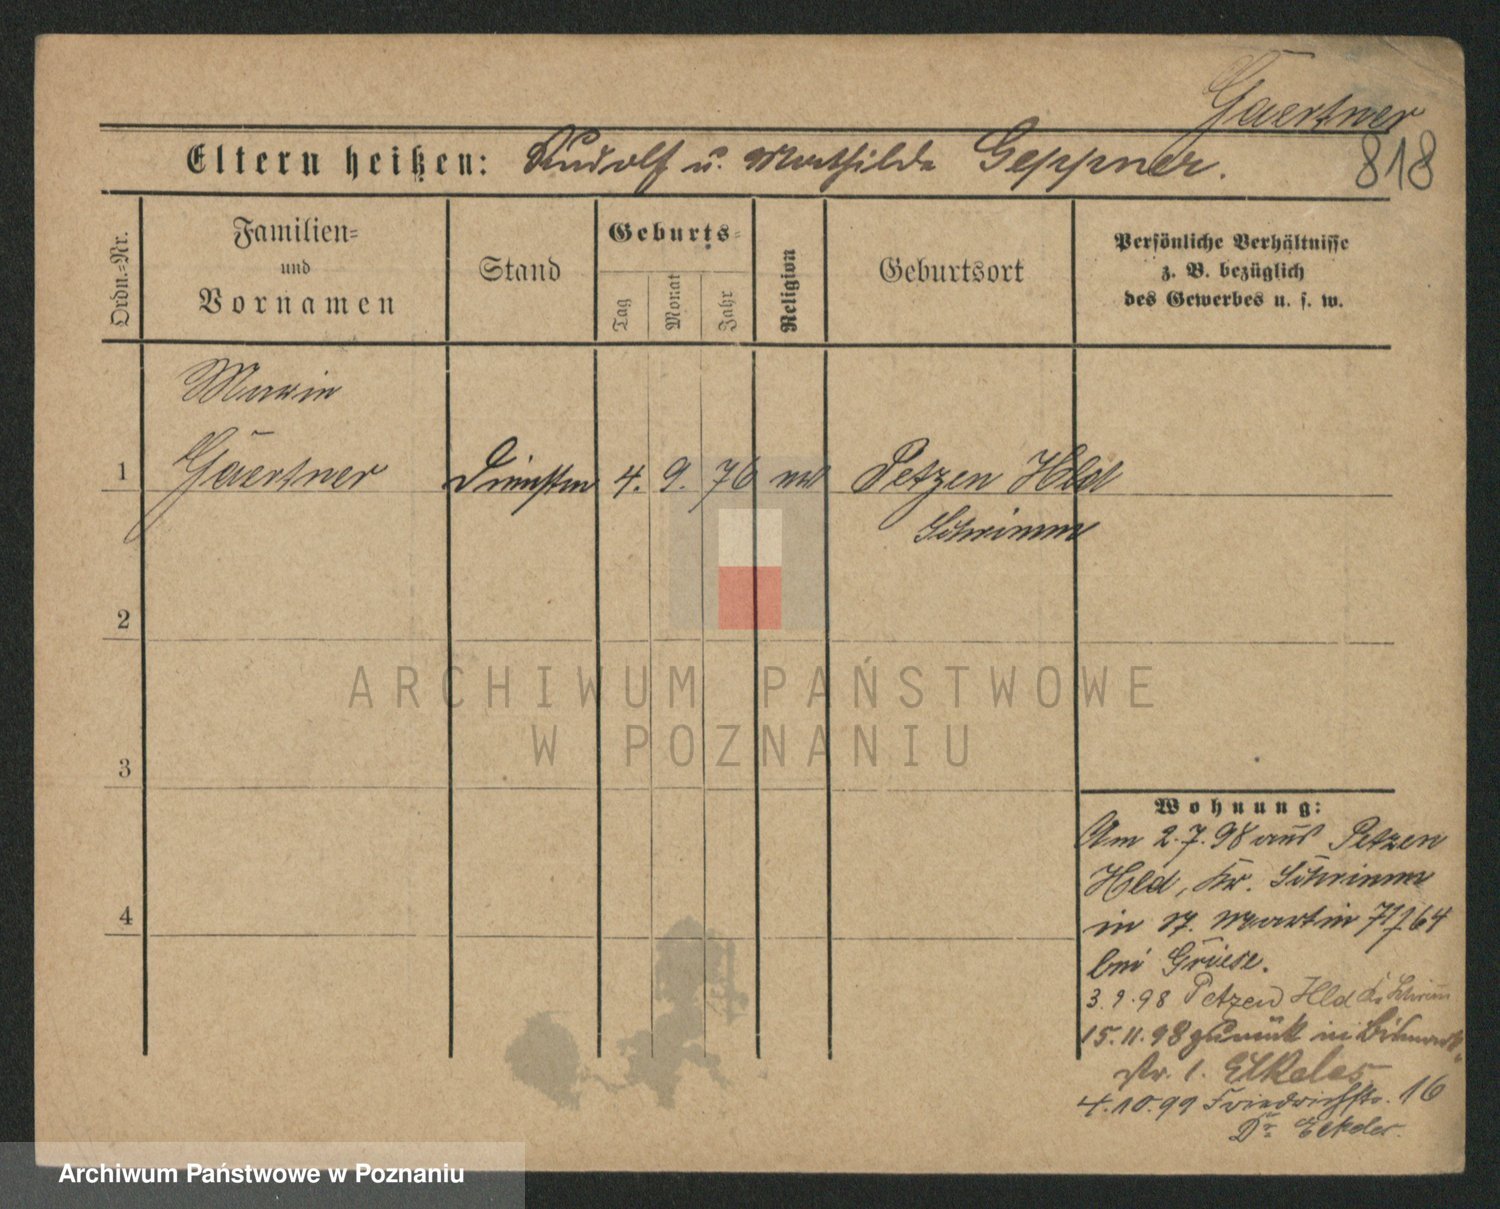 Gaertner
818
Eltern heißen: Rudolf u. Mathilde Geppner.
Ordn.-Nr.
Familien-
und
Vornamen
Stand
Geburts-
Tag
Monat
Jahr
Religion
Geburtsort
Persönliche Verhältnisse
z. B. bezüglich
des Gewerbes u. s. w.
Marie
1 Gaertner 4. 9. 76 Petzen Hld
Schrimm
2
3
4
Wohnung:
Am 2.7.98 aus Petzen
Hld, Kr. Schrimm
in St. Martin 71/64
bei Griese.
3.9.98 Petzen Hld Kr Schrimm
15.11.98 zurück in Bismark
str. 1. Elkeles
4.10.99 Friedrichstr. 16
Dr.
ARCHIWUM PAŃSTWOWE
W POZNANIU
Archiwum Państwowe w Poznaniu